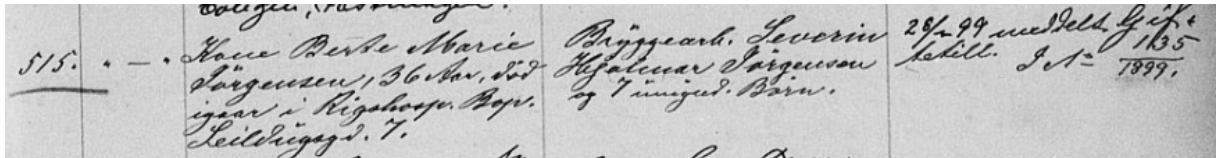 515. " — " Kone Berte Marie
Jörgensen, 36 Aar, död
igaar i Rigshosp. Bop.
Seildugsgd. 7.
Bryggearb. Severin
Hjalmar Jörgensen
og 7 umynd. Börn.
99 meddelt
tetill. J No 1135
1899.